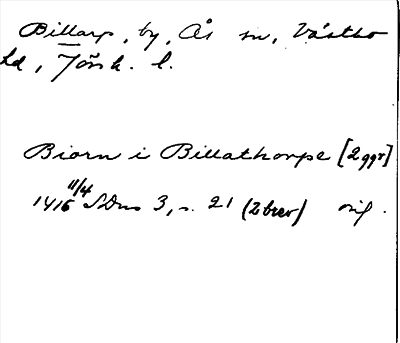 Billarp, by, Ås sn, Västbo
hd, Jönk. l.
Biorn i Billathorpe [2 ggr]
1416 11/4 SDns 3, s. 21 (2 brev) orig.